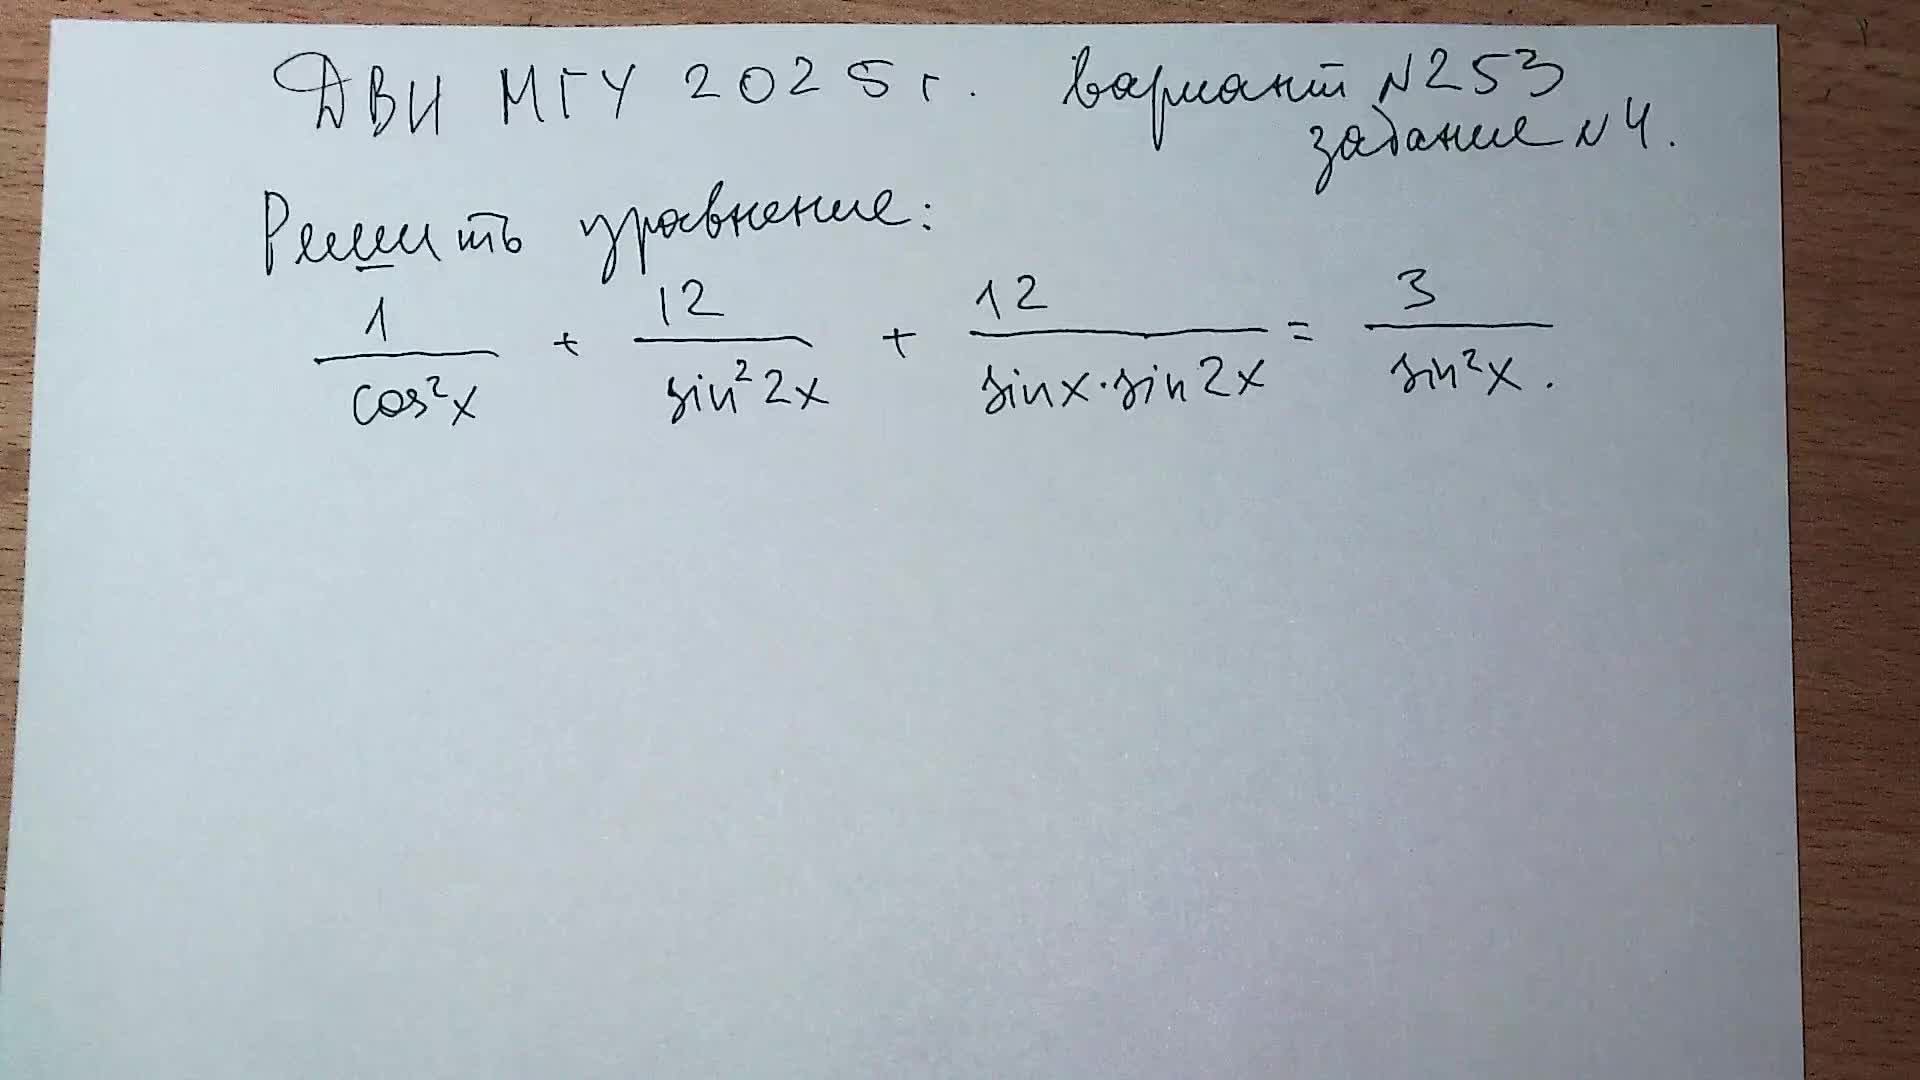 ДВИ МГУ 2025 г. вариант №253
задание №4.
Решить уравнение:
1/cos²x + 12/sin²2x + 12/(sinx·sin2x) = 3/sin²x.